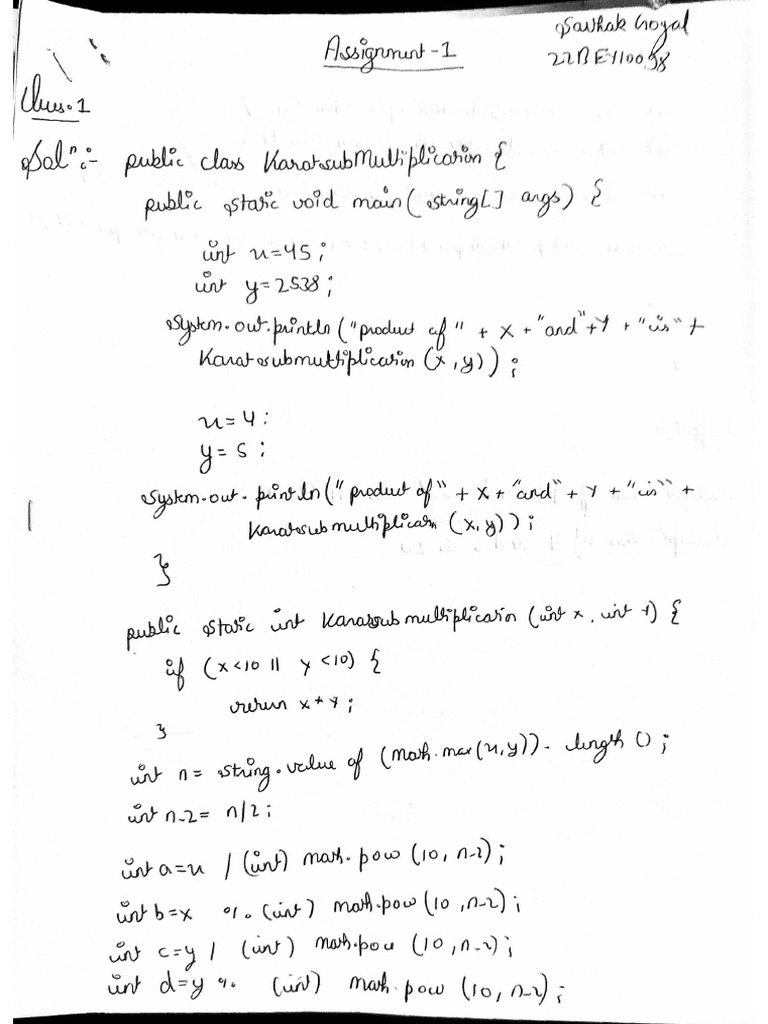 Assignment-1
Sarthak Goyal
22BEY10098
Ques.1
Solⁿ:- public class KaratsubMultiplication {
public static void main(string[] args) {
int x=45;
int y=2538;
System.out.println("product of" + x + "and"+Y + "is" +
Karatsubmultiplication (x,y));
x=4;
y=5;
System.out.println("product of" + x + "and" + Y + "is" +
Karatsubmultiplication (x,y));
}
public static int Karatsubmultiplication (int x, int Y) {
if (x<10 || y<10) {
return x*Y;
}
int n= string.value of (Math.max(x,y)).length();
int n-2= n/2;
int a=x / (int) math.pow (10, n-2);
int b=x % (int) math.pow (10, n-2);
int c=y / (int) math.pow (10, n-2);
int d=y % (int) math.pow (10, n-2);